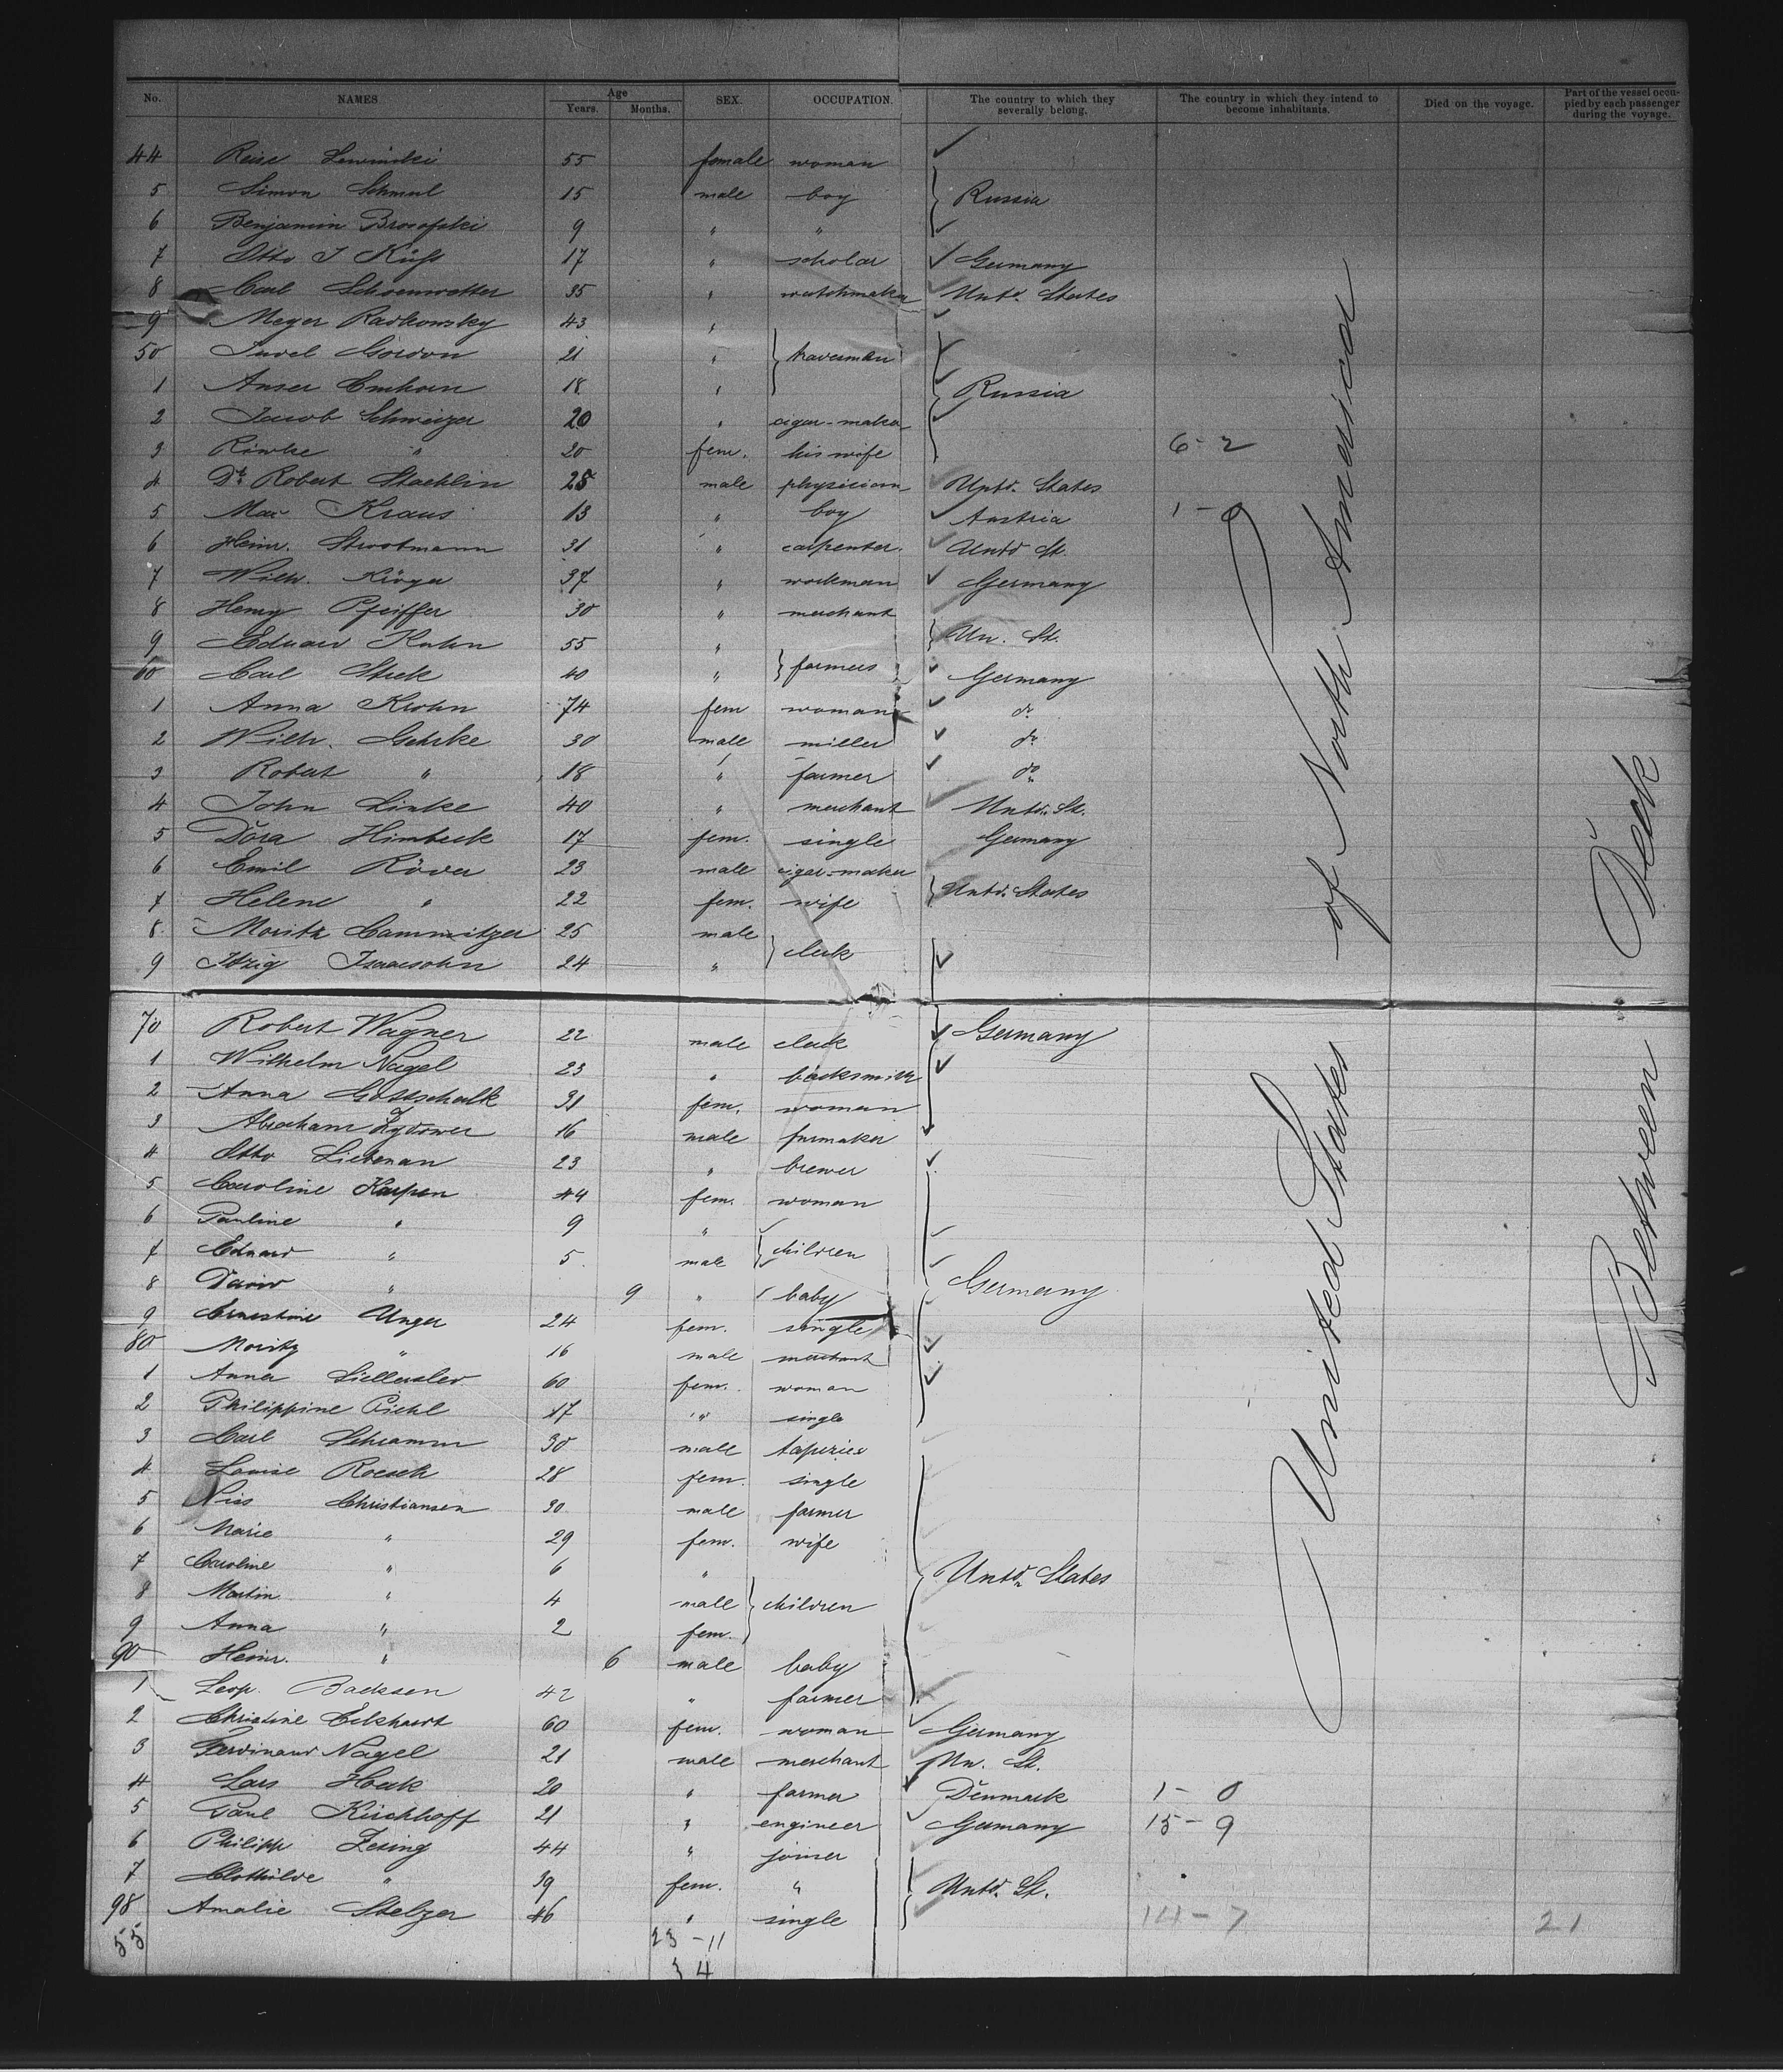 No. NAMES Age Years. Months. SEX. OCCUPATION. The country to which they severally belong. The country in which they intend to become inhabitants. Died on the voyage. Part of the vessel occupied by each passenger during the voyage.
44 55 female woman
5 Simon Schmul 15 male boy Russia
6 Benjamin 9 " "
7 Otto J 17 " scholar Germany
8 Carl Schoenwetter 35 " watchmaker Untd. States
9 Meyer Radkowsky 43 "
50 Gordon 21 "
1 18 " Russia
2 Jacob 20 " cigar-maker
3 Riwke " 20 fem. his wife 6-2
4 Dr. Robert Staehlin 28 male physician Untd. States
5 Max Kraus 13 " boy Austria 1-0
6 Heinr. Strootmann 31 " carpenter. Untd St.
7 Wilh. 37 " workman Germany
8 Henry Pfeiffer 30 " merchant
9 Eduard Kuhn 55 " Un. St.
60 Carl 40 " farmers Germany
1 Anna Krohn 74 fem woman do
2 Wilh. Gehrke 30 male miller do
3 Robert " 18 " farmer do
4 John Linke 40 " merchant Untd. St.
5 Dora Himbeck 17 fem. single Germany
6 Emil Röver 23 male cigar-maker
7 Helene " 22 fem. wife Untd. States
8 Moritz Cammnitzer 25 male
9 Itzig Isaacsohn 24 " clerk
70 Robert Wagner 22 male clerk Germany
1 Wilhelm Nagel 23 "
2 Anna Gottschalk 31 fem. woman
3 Abraham Zydower 16 male furmaker
4 Otto Liebman 23 " brewer
5 Caroline Karpen 44 fem. woman
6 Pauline " 9 "
7 Eduard " 5 male children
8 David " 9 " baby Germany
9 Ernestine Unger 24 fem. single
80 Moritz " 16 male merchant
1 Anna 60 fem. woman
2 Philippine 17 " single
3 Carl Schramm 30 male
4 Louise Roesch 28 fem. single
5 Nis Christiansen 30 male farmer
6 Marie " 29 fem. wife
7 Caroline " 6 " Untd. States
8 Martin " 4 male children
9 Anna " 2 fem.
90 Heinr. " 6 male baby
1 Leop. Backsen 42 " farmer
2 Christine Eckhardt 60 fem. woman Germany
3 Ferdinand Nagel 21 male merchant Un. St.
4 Lars Hock 20 " farmer Denmark 1-0
5 Paul Kirchhoff 21 " engineer Germany 15-9
6 Philipp 44 " joiner
7 Clothilde " 39 fem. " Untd. St.
98 Amalie Stelzer 46 " single 14-7 21
55 23-11
4
United States of North America
Between Deck